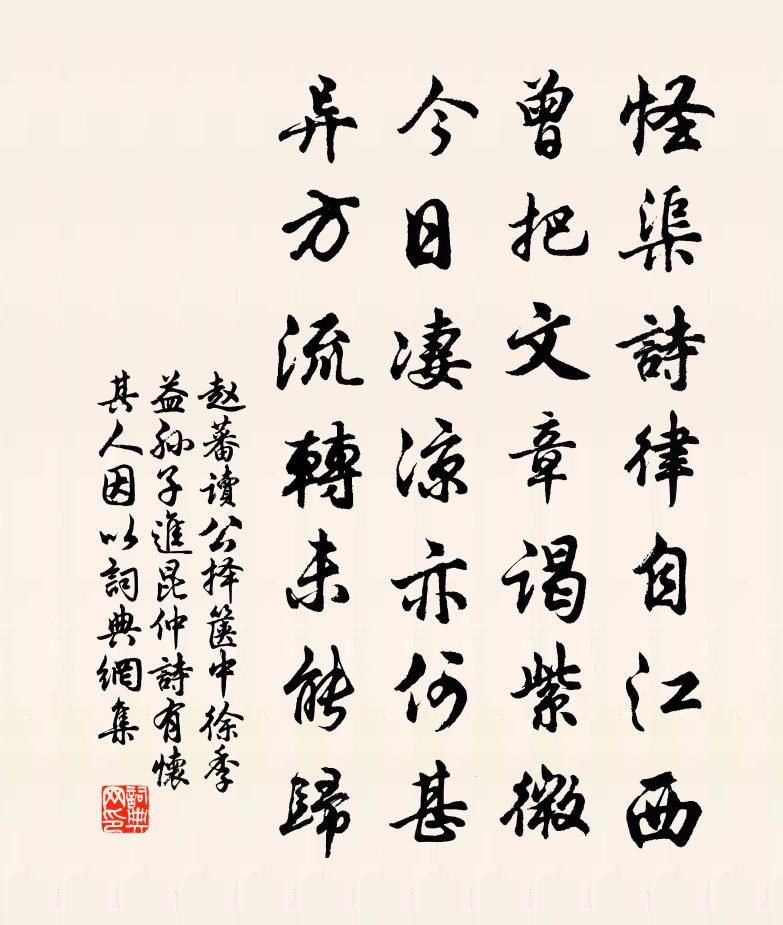 怪渠詩律自江西
曾把文章谒紫微
今日凄涼亦何甚
异方流轉未能歸
赵蕃讀公择箧中徐季
益孙子進昆仲詩有懷
其人因以詞典網集
詞典网印